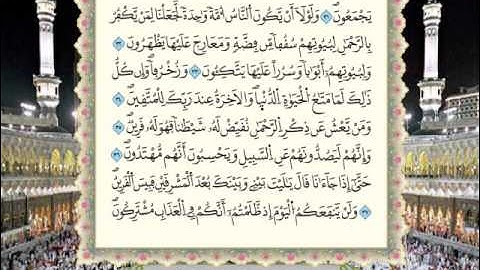 يَجْمَعُونَ وَلَوْلَا أَن يَكُونَ النَّاسُ أُمَّةً وَاحِدَةً لَّجَعَلْنَا لِمَن يَكْفُرُ
بِالرَّحْمَٰنِ لِبُيُوتِهِمْ سُقُفًا مِّن فِضَّةٍ وَمَعَارِجَ عَلَيْهَا يَظْهَرُونَ
وَلِبُيُوتِهِمْ أَبْوَابًا وَسُرُرًا عَلَيْهَا يَتَّكِئُونَ وَزُخْرُفًا وَإِن كُلُّ
ذَٰلِكَ لَمَا مَتَاعُ الْحَيَوٰةِ الدُّنْيَا وَالْآخِرَةُ عِندَ رَبِّكَ لِلْمُتَّقِينَ
وَمَن يَعْشُ عَن ذِكْرِ الرَّحْمَٰنِ نُقَيِّضْ لَهُ شَيْطَٰنًا فَهُوَ لَهُ قَرِينٌ
وَإِنَّهُمْ لَيَصُدُّونَهُمْ عَنِ السَّبِيلِ وَيَحْسِبُونَ أَنَّهُم مُّهْتَدُونَ
حَتَّىٰ إِذَا جَآءَانَا قَالَ يَٰلَيْتَ بَيْنِي وَبَيْنَكَ بُعْدَ الْمَشْرِقَيْنِ فَبِيسَ الْقَرِينُ
وَلَن يَنفَعَكُمُ الْيَوْمَ إِذ ظَّلَمْتُمْ أَنَّكُمْ فِي الْعَذَابِ مُشْتَرِكُونَ